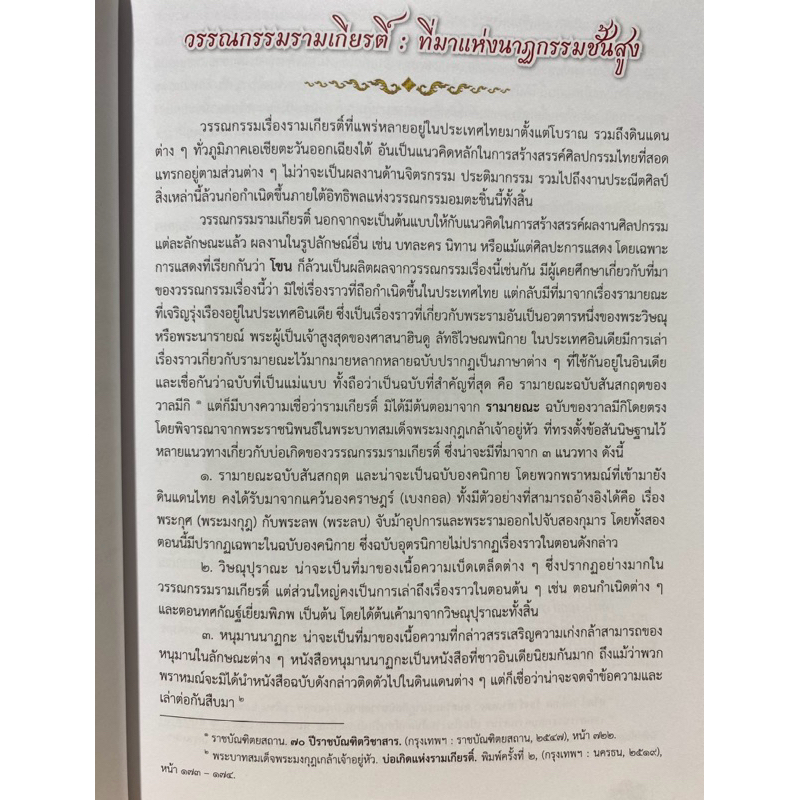 วรรณกรรมรามเกียรติ์ : ที่มาแห่งนาฏกรรมชั้นสูง
วรรณกรรมเรื่องรามเกียรติ์ที่แพร่หลายอยู่ในประเทศไทยมาตั้งแต่โบราณ รวมถึงดินแดน
ต่าง ๆ ทั่วภูมิภาคเอเชียตะวันออกเฉียงใต้ อันเป็นแนวคิดหลักในการสร้างสรรค์ศิลปกรรมไทยที่สอด
แทรกอยู่ตามส่วนต่าง ๆ ไม่ว่าจะเป็นผลงานด้านจิตรกรรม ประติมากรรม รวมไปถึงงานประณีตศิลป์
สิ่งเหล่านี้ล้วนก่อกำเนิดขึ้นภายใต้อิทธิพลแห่งวรรณกรรมอมตะชิ้นนี้ทั้งสิ้น
วรรณกรรมรามเกียรติ์ นอกจากจะเป็นต้นแบบให้กับแนวคิดในการสร้างสรรค์ผลงานศิลปกรรม
แต่ละลักษณะแล้ว ผลงานในรูปลักษณ์อื่น เช่น บทละคร นิทาน หรือแม้แต่ศิลปะการแสดง โดยเฉพาะ
การแสดงที่เรียกกันว่า โขน ก็ล้วนเป็นผลิตผลจากวรรณกรรมเรื่องนี้เช่นกัน มีผู้เคยศึกษาเกี่ยวกับที่มา
ของวรรณกรรมเรื่องนี้ว่า มิใช่เรื่องราวที่ถือกำเนิดขึ้นในประเทศไทย แต่กลับมีที่มาจากเรื่องรามายณะ
ที่เจริญรุ่งเรืองอยู่ในประเทศอินเดีย ซึ่งเป็นเรื่องราวที่เกี่ยวกับพระรามอันเป็นอวตารหนึ่งของพระวิษณุ
หรือพระนารายณ์ พระผู้เป็นเจ้าสูงสุดของศาสนาฮินดู ลัทธิไวษณพนิกาย ในประเทศอินเดียมีการเล่า
เรื่องราวเกี่ยวกับรามายณะไว้มากมายหลากหลายฉบับปรากฏเป็นภาษาต่าง ๆ ที่ใช้กันอยู่ในอินเดีย
และเชื่อกันว่าฉบับที่เป็นแม่แบบ ทั้งถือว่าเป็นฉบับที่สำคัญที่สุด คือ รามายณะฉบับสันสกฤตของ
วาลมีกิ ๑ แต่ก็มีบางความเชื่อว่ารามเกียรติ์ มิได้มีต้นตอมาจาก รามายณะ ฉบับของวาลมีกิโดยตรง
โดยพิจารณาจากพระราชนิพนธ์ในพระบาทสมเด็จพระมงกุฎเกล้าเจ้าอยู่หัว ที่ทรงตั้งข้อสันนิษฐานไว้
หลายแนวทางเกี่ยวกับบ่อเกิดของวรรณกรรมรามเกียรติ์ ซึ่งน่าจะมีที่มาจาก ๓ แนวทาง ดังนี้
๑. รามายณะฉบับสันสกฤต และน่าจะเป็นฉบับองคนิกาย โดยพวกพราหมณ์ที่เข้ามายัง
ดินแดนไทย คงได้รับมาจากแคว้นองคราษฎร์ (เบงกอล) ทั้งมีตัวอย่างที่สามารถอ้างอิงได้คือ เรื่อง
พระกุศ (พระมงกุฎ) กับพระลพ (พระลบ) จับม้าอุปการและพระรามออกไปจับสองกุมาร โดยทั้งสอง
ตอนนี้มีปรากฏเฉพาะในฉบับองคนิกาย ซึ่งฉบับอุตรนิกายไม่ปรากฏเรื่องราวในตอนดังกล่าว
๒. วิษณุปุราณะ น่าจะเป็นที่มาของเนื้อความเบ็ดเตล็ดต่าง ๆ ซึ่งปรากฏอย่างมากใน
วรรณกรรมรามเกียรติ์ แต่ส่วนใหญ่คงเป็นการเล่าถึงเรื่องราวในตอนต้น ๆ เช่น ตอนกำเนิดต่าง ๆ
และตอนทศกัณฐ์เยี่ยมพิภพ เป็นต้น โดยได้ต้นเค้ามาจากวิษณุปุราณะทั้งสิ้น
๓. หนุมานนาฏกะ น่าจะเป็นที่มาของเนื้อความที่กล่าวสรรเสริญความเก่งกล้าสามารถของ
หนุมานในลักษณะต่าง ๆ หนังสือหนุมานนาฏกะเป็นหนังสือที่ชาวอินเดียนิยมกันมาก ถึงแม้ว่าพวก
พราหมณ์จะมิได้นำหนังสือฉบับดังกล่าวติดตัวไปในดินแดนต่าง ๆ แต่ก็เชื่อว่าน่าจะจดจำข้อความและ
เล่าต่อกันสืบมา ๒
๑ ราชบัณฑิตยสถาน. ๗๐ ปีราชบัณฑิตวิชาสาร. (กรุงเทพฯ : ราชบัณฑิตยสถาน, ๒๕๔๗), หน้า ๗๒๒.
๒ พระบาทสมเด็จพระมงกุฎเกล้าเจ้าอยู่หัว. บ่อเกิดแห่งรามเกียรติ์. พิมพ์ครั้งที่ ๒, (กรุงเทพฯ : นครธน, ๒๕๑๙),
หน้า ๑๗๓ – ๑๗๔.